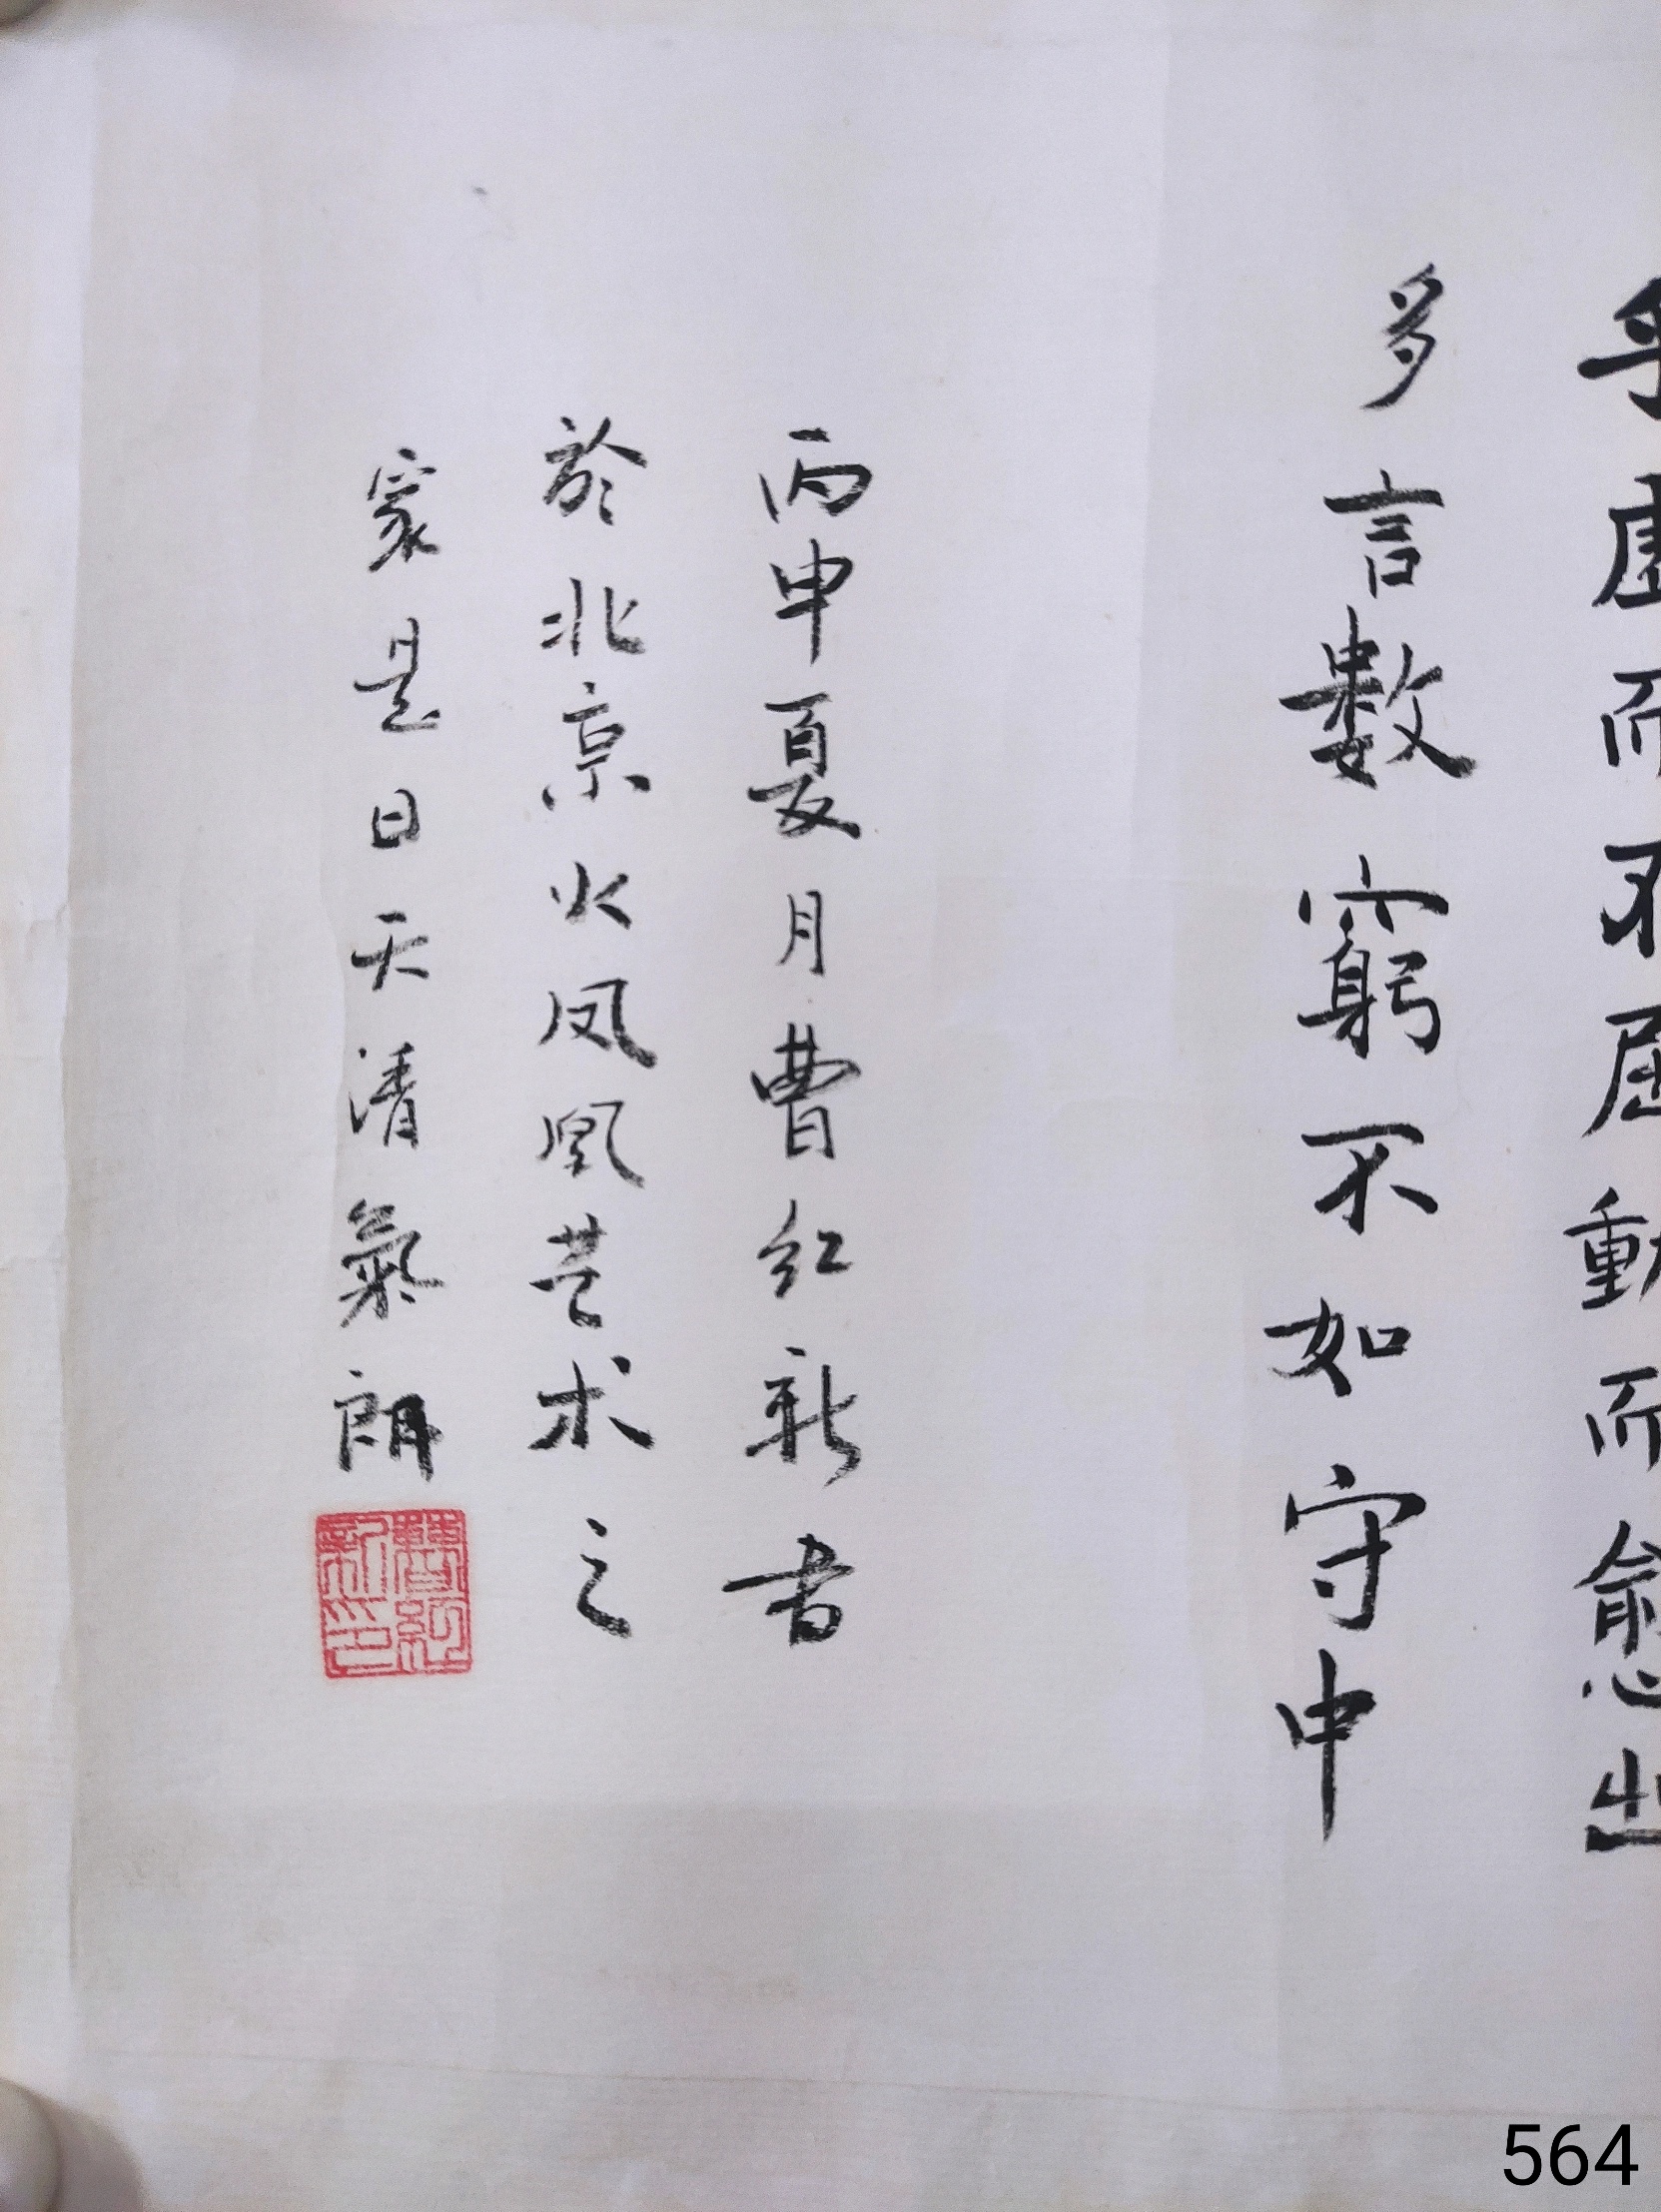 乎虛而不屈動而愈出
多言數窮不如守中
丙申夏月曹红新书
於北京火凤凰艺术之
家是日天清氣朗
曹紅新印
564